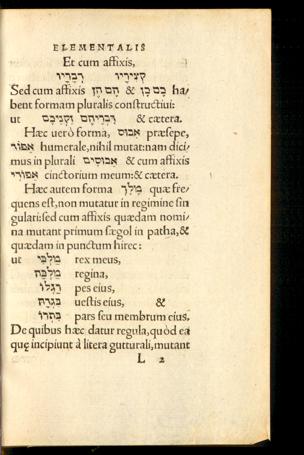 ELEMENTALIS
Et cum affixis,
קציריו דבריו
Sed cum affixis כם כן & הם הן ha/
bent formam pluralis constructiui:
ut דבריהם & cætera.
Hæc uerò forma, אבוס præsepe,
אפור humerale, nihil mutat: nam dici/
mus in plurali אבוסים & cum affixis
אפורי cinctorium meum: & cætera.
Hæc autem forma מלך quæ fre/
quens est, non mutatur in regimine sin
gulari: sed cum affixis quædam nomi/
na mutant primum sægol in patha, &
quædam in punctum hirec:
ut מלכי rex meus,
regina,
רגלו pes eius,
uestis eius, &
בתרו pars seu membrum eius.
De quibus hæc datur regula, quòd ea
quę incipiunt à litera gutturali, mutant
L 2